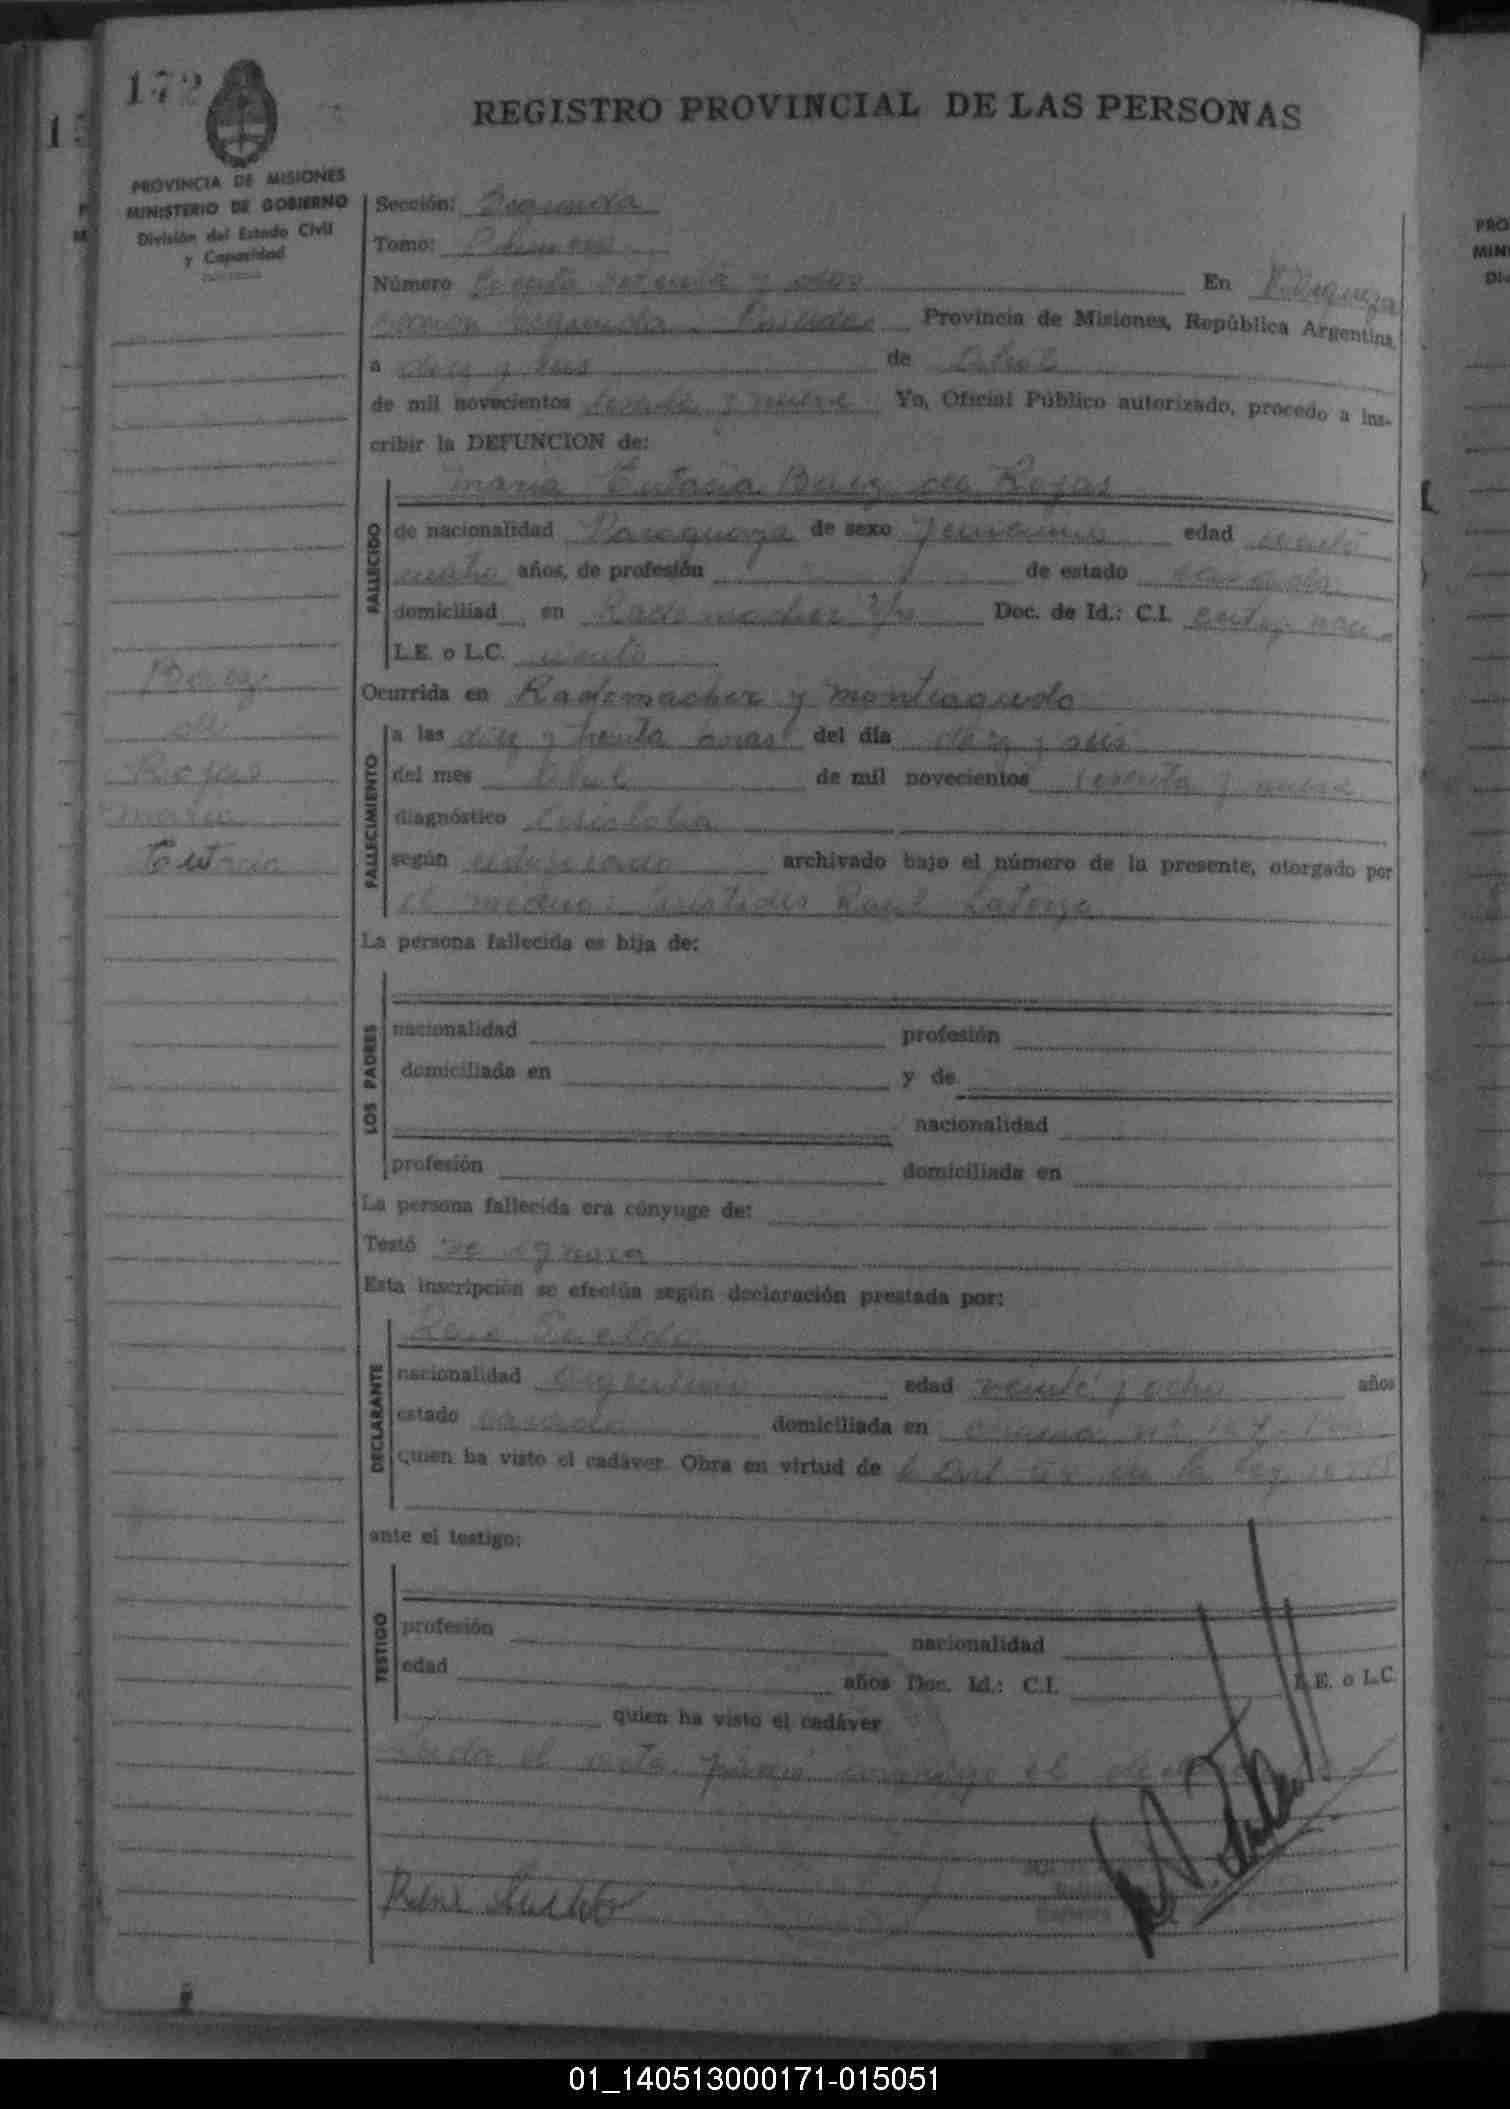 172
REGISTRO PROVINCIAL DE LAS PERSONAS
PROVINCIA DE MISIONES
MINISTERIO DE GOBIERNO
División del Estado Civil
y Capacidad
Sección: Segunda
Tomo: Primero
Número setenta y dos En V. Urquiza
sección segunda. Posadas Provincia de Misiones, República Argentina,
a diez y seis de Abril
de mil novecientos sesenta y nueve Yo, Oficial Público autorizado, procedo a ins-
cribir la DEFUNCION de:
FALLECIDO
Maria Eutacia Baez de Rojas
de nacionalidad Paraguaya de sexo femenino edad
años, de profesión de estado casada
domiciliad en Rademacher s/n Doc. de Id.: C.I.
L.E. o L.C.
Baez
de
Rojas
Maria
Eutacia
Ocurrida en Rademacher y Monteagudo
FALLECIMIENTO
a las diez y treinta horas del día diez y seis
del mes Abril de mil novecientos sesenta y nueve
diagnóstico
según certificado archivado bajo el número de la presente, otorgado por
el médico: Aristides Raul
La persona fallecida es hija de:
LOS PADRES
nacionalidad profesión
domiciliada en y de
nacionalidad
profesión domiciliada en
La persona fallecida era cónyuge de:
Testó se ignora
Esta inscripción se efectúa según declaración prestada por:
DECLARANTE
nacionalidad argentino edad veinte y ocho años
estado casado domiciliada en
quien ha visto el cadáver. Obra en virtud de de la ley
ante el testigo:
TESTIGO
profesión nacionalidad
edad años Doc. Id.: C.I. L.E. o L.C.
quien ha visto el cadáver
Leida el acta, firmó conmigo el
01_140513000171-015051